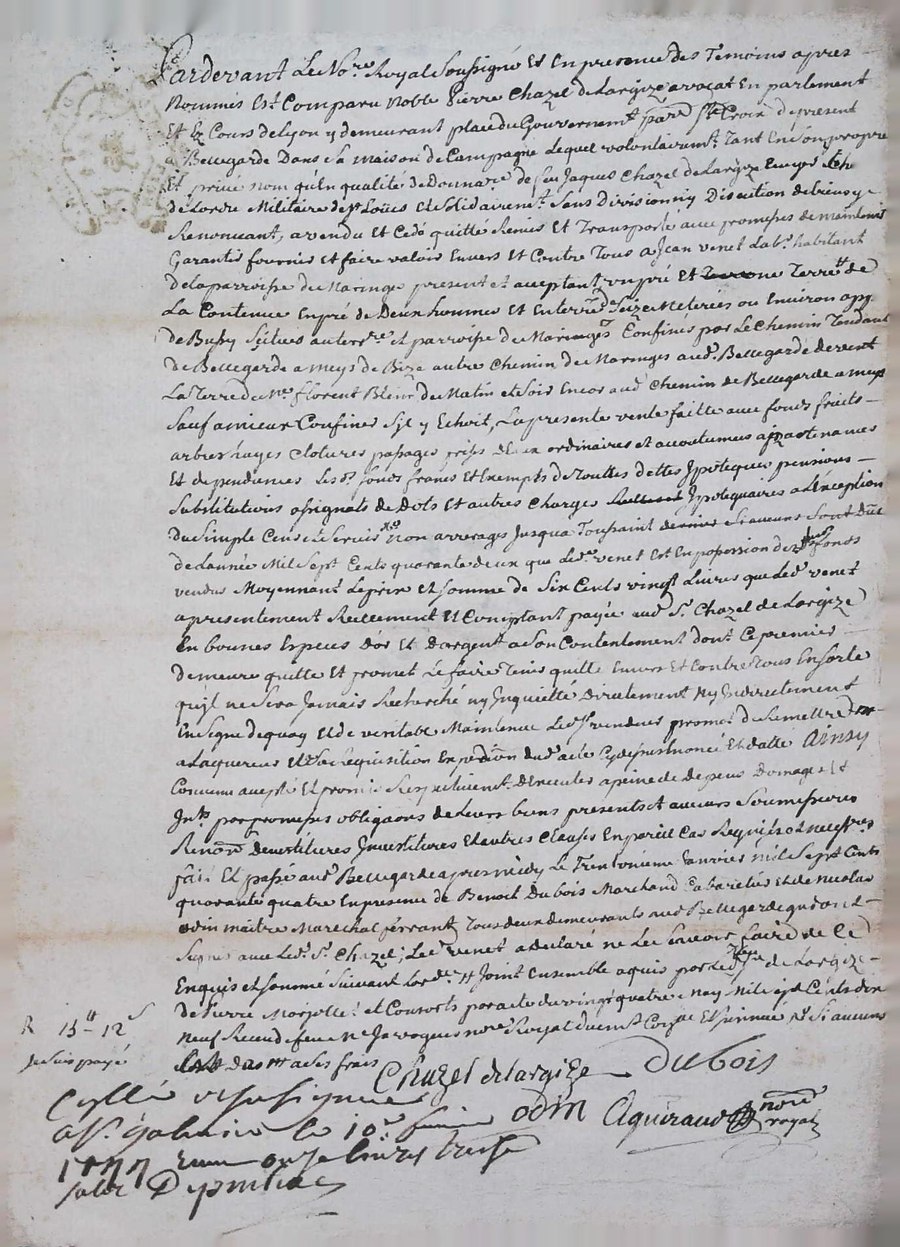 Pardevant Le No.re Royal Soussigné Et En presence des Temoins apres
Nommés Est Comparu Noble Pierre Chazel de Largize avocat En parlement
Et Ez Cours de Lyon y demeurant place du Gouvernem.t parr.e S.te Croix de present
a Bellegarde Dans Sa maison de Campagne Lequel volontairem.t Tant En Son propre
Et privé nom qu'En qualité de Donnatr.e de feu Jaques Chazel de Largize
de Lordre Militaire de S.t Loüis et Solidairem.t Sans Division ny Discution
Renoncant, a vendu Et Cedé quitté Remis Et Transporté avec promesses de
Garantir fournir et faire valoir Envers Et Contre Tous a Jean venet Lab.r habitant
de la parroisse de Maringe present et acceptant, un pré Et Terre de
La Contenue En pré de Deux hommes Et En terre de Seize Meterées ou Environ
de Bussy Scitués au terr.re et parroisse de Maringes Confinés par Le Chemin Tendant
de Bellegarde a Meys de Bize autre Chemin de Maringes aud. Bellegarde de vent
La Terre de M.re florent de Matin et Soir Encor aud. Chemin de Bellegarde a Meys
Sauf a mieux Confiner Sjl y Echoit, La presente vente faitte avec fonds fruits
arbres hayes Clotures passages prises d'Eaux ordinaires et acoutumés apartenances
Et dependances Lesd. fonds francs Et Exempts de Touttes dettes Ypoteques pensions
Substitutions assignats de Dots et autres Charges Ypotequaires a L'Exception
Du Simple Cens et Servis Non arrerages Jusqua Toussaint derniere Si aucuns Sont Dûs
de Lannée Mil Sept Cents quarante deux que Led. venet Est En possession desd. fonds
vendus Moyennant Le prix et Somme de Six Cents vingt Livres que Led. venet
a presentement Reellement Et Comptant payée aud. S.r Chazel de Largize
En bonnes Especes D'or Et D'argent a Son Contentement dont Ce premier
demeure quitte Et promet Le faire Tenir quitte Envers Et Contre Tous En Sorte
qu'jl ne Sera Jamais Recherché ny Inquietté Directement Ny Indirectement
En Signe de quoy Et de veritable Maintenue Led. S.r vendeur promet de Remettre
a Laquereur Et a Sa Requisition Expedition dud. acte Cy dessus Enoncé Et datté Ainsy
Convenu accepté Et promis Respectivem.t D'Executer a peine de depens Domages Et
Jnts par promesses obligaons de Leurs biens presents et avenirs Soumissions
Renon.s Devestitures Jnvestitures Et autres Clauses En pareil Cas Requises et necess.res
fait Et passé aud. Bellegarde apres midy Le Trente unieme Janvier mil Sept Cents
quarante quatre En presence de Benoit Dubois Marchand Cabaretier Et de Nicolas
odin maitre Marechal ferrant Tous deux demeurants aud. Bellegarde qui ont
Signés avec Led. S.r Chazel; Led. venet a declaré ne Le Scavoir faire de Ce
Enquis et Sommé Suivant Lord.ce Joint Ensemble aquis par Led. S.r de Largize
de Pierre et Consorts par acte du vingt quatre May Mil Sept Cents dix
Neuf Receu de feu M.e Jarrogues no.re Royal Duem.t Con.lé Et Jnsinué Si aucuns
a Ses frais
R 13ᵗᵗ 12ˢ
je suis payé
Chazel de largize Dubois
odin Aguiraud no.re royal
Collé
a S.t Galmier le 10.e
onze livres treize